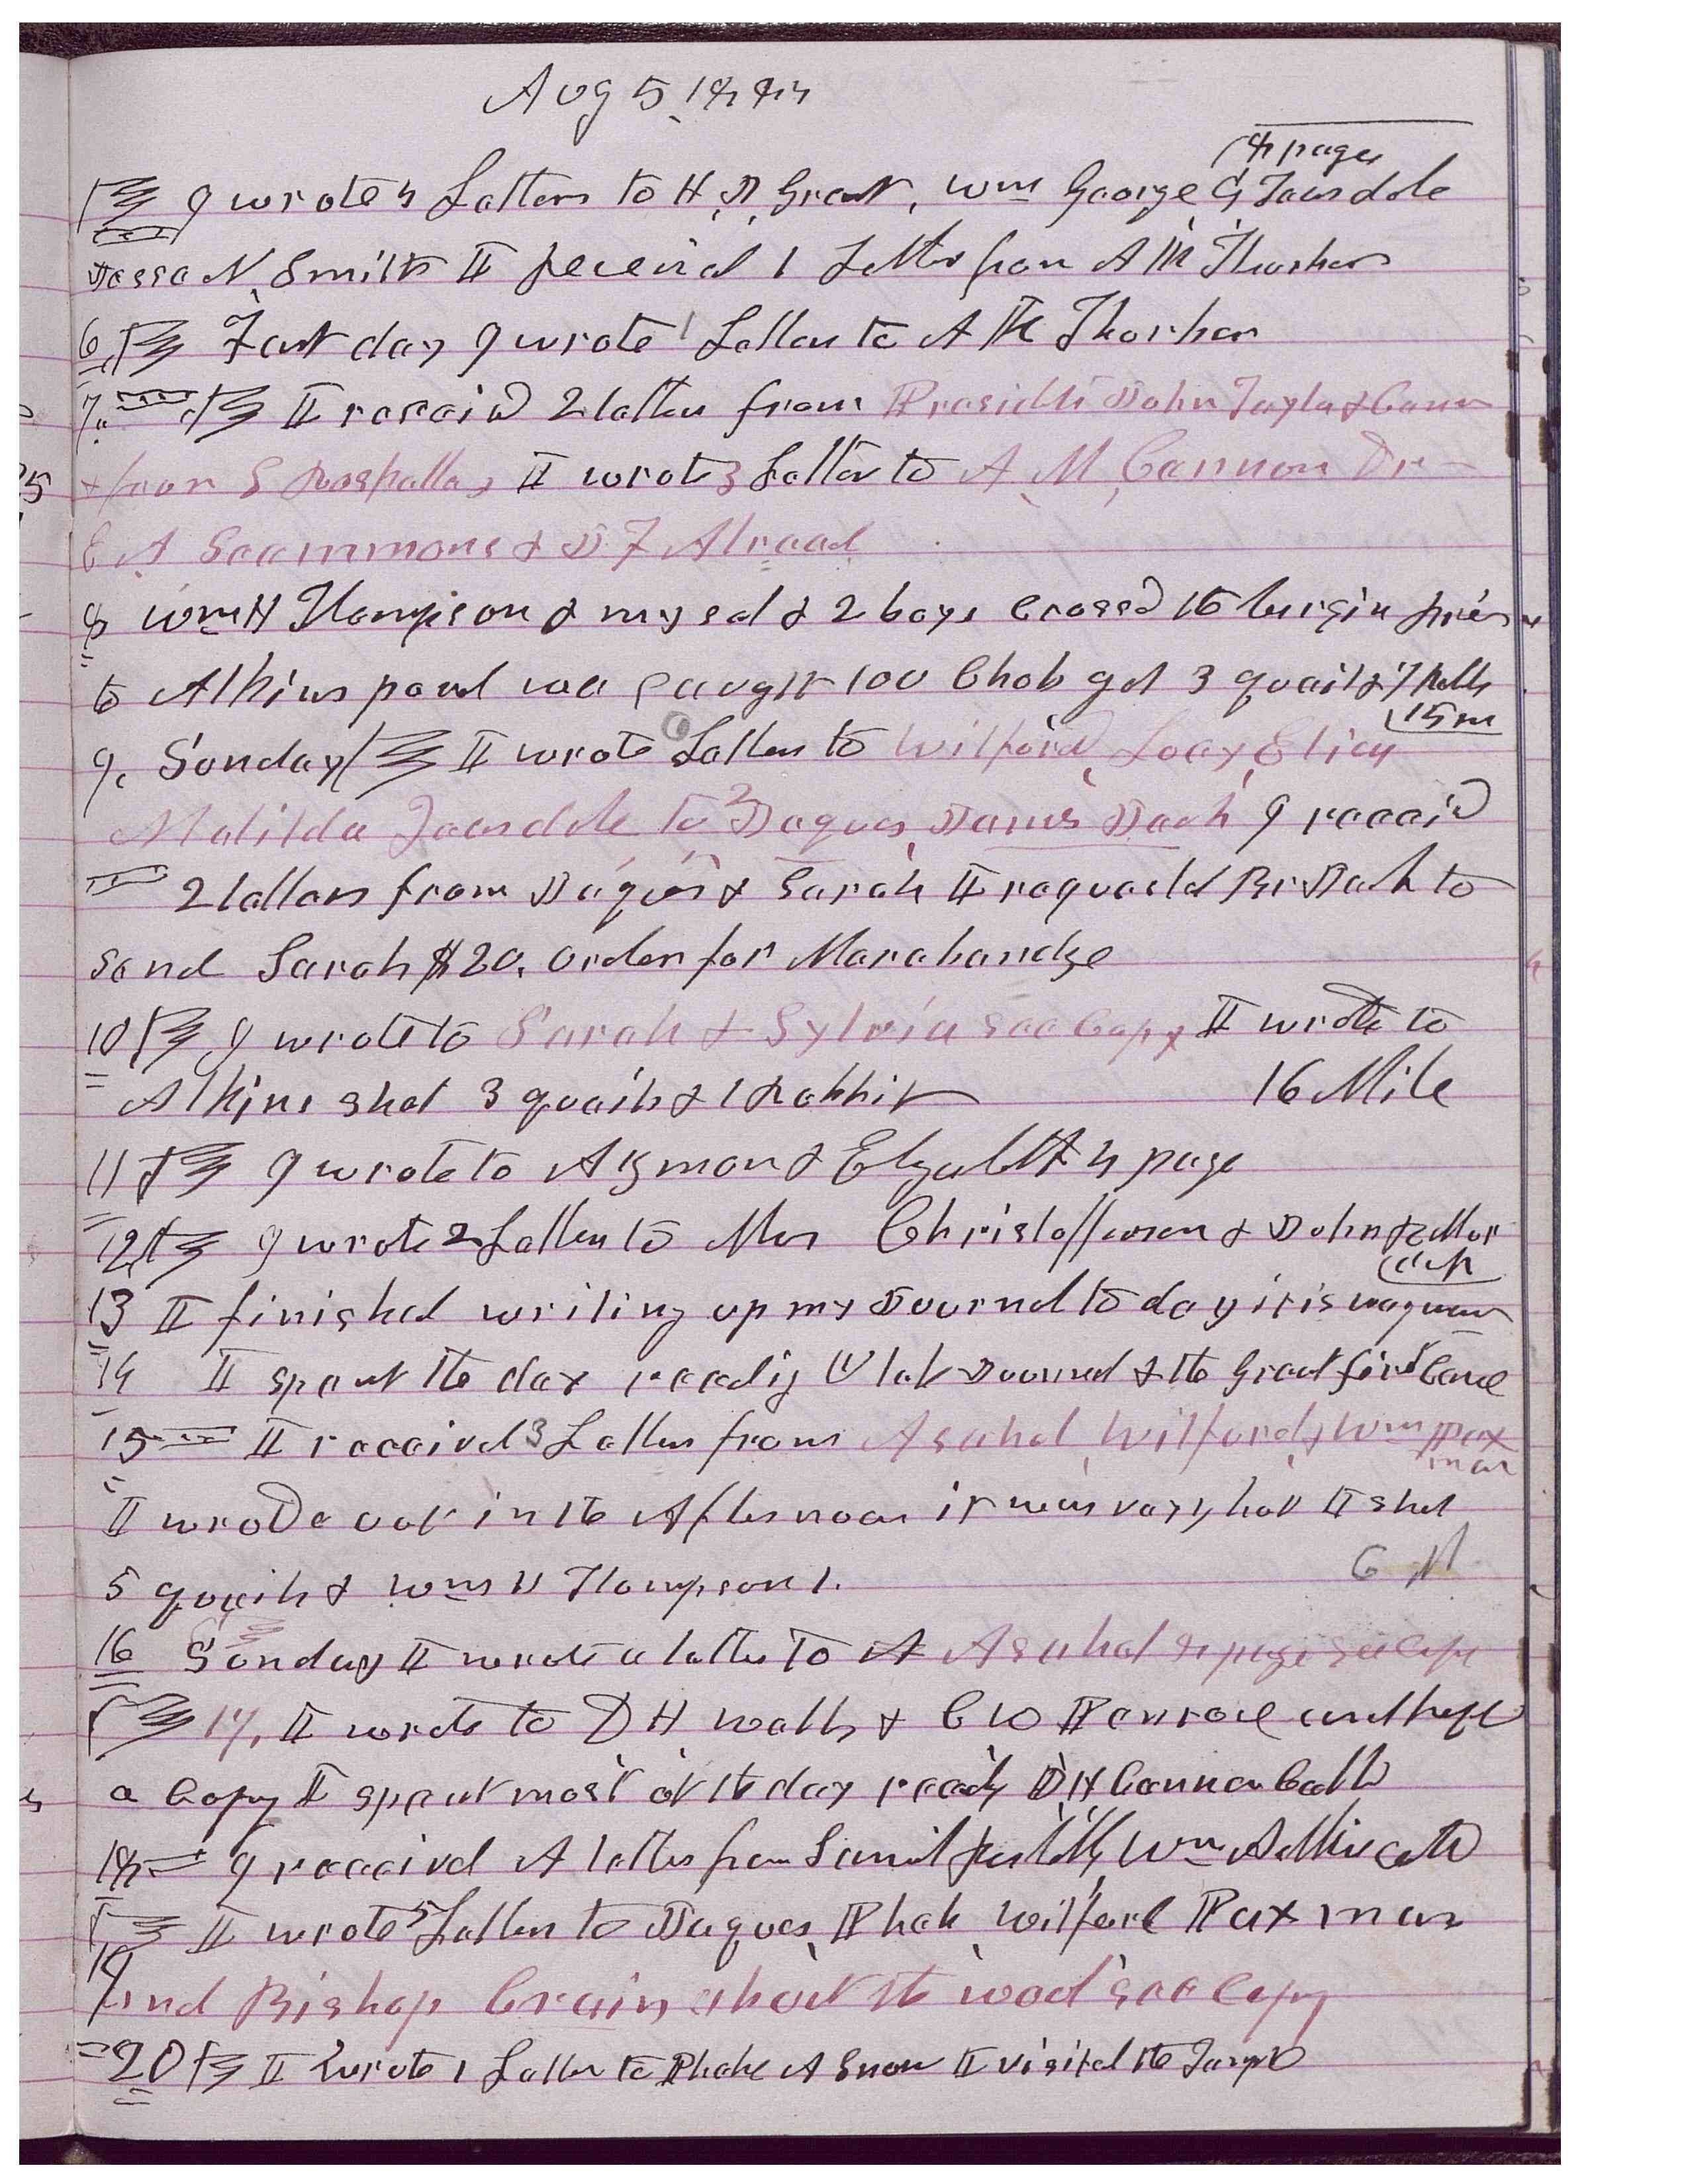 Aug 5, 1885
8 pages
I wrote 4 Letters to H. J. Grant, Wm George, G Teasdale
Jesse N. Smith I received 1 Letter from A M Thurber
6, Fast day I wrote 1 Letter to A K Thurber
7. I receivd 2 letters from Presidets John Taylor & Cannon
& from S Roskelley, I wrote 3 Letter to A M, Cannon Dr
E A Seammons & D F Atwood
8 Wm H Thompson & myself & 2 boys Crossd the Virgin River
to Atkins pond we Caught 100 Chob got 3 quails & 7 Rabb
15 m
9. Sunday I wrote 6 Letters to Wilford, Lucy, Eliza
Matilda Teasdale to 2 Jaques, James Jack I receivd
2 letters from Jaques & Sarah I requested Br Jack to
send Sarah $20. order for Marchandize
10 I wrote to Sarah & Sylvia see Copy I wrote to
Atkins shot 3 quails & 1 Rabbit 16 Mile
11 I wrote to Azmon & Elizabeth 4 page
12, I wrote 2 Letters to Mrs Christoffersen & John
13 I finished writing up my Journal to day it is
14 I spent the day reading Utah Journal & the Great
15 I received 3 Letters from Asahel, Wilford, Wm Pax
man
I wrode out in the Afternoon it was very hot I shot
5 quails & Wm H Thompson 1. 6 M
16 Sunday I wrote a letter to A Asahel 8 page see Copy
17, I wrote to D H Wells & C W Penrose and kept
a Copy I spent most of the day readg D, H Cannon
18 I receeivd A letter from Samuel Roskelly, Wm
I wrote 5 Letters to Jaques, Phebe, Wilford Paxman
19
And Bishop Crain, about the wood see Copy
20 I wrote 1 Letter to Phebe A Snow I visited the Temple